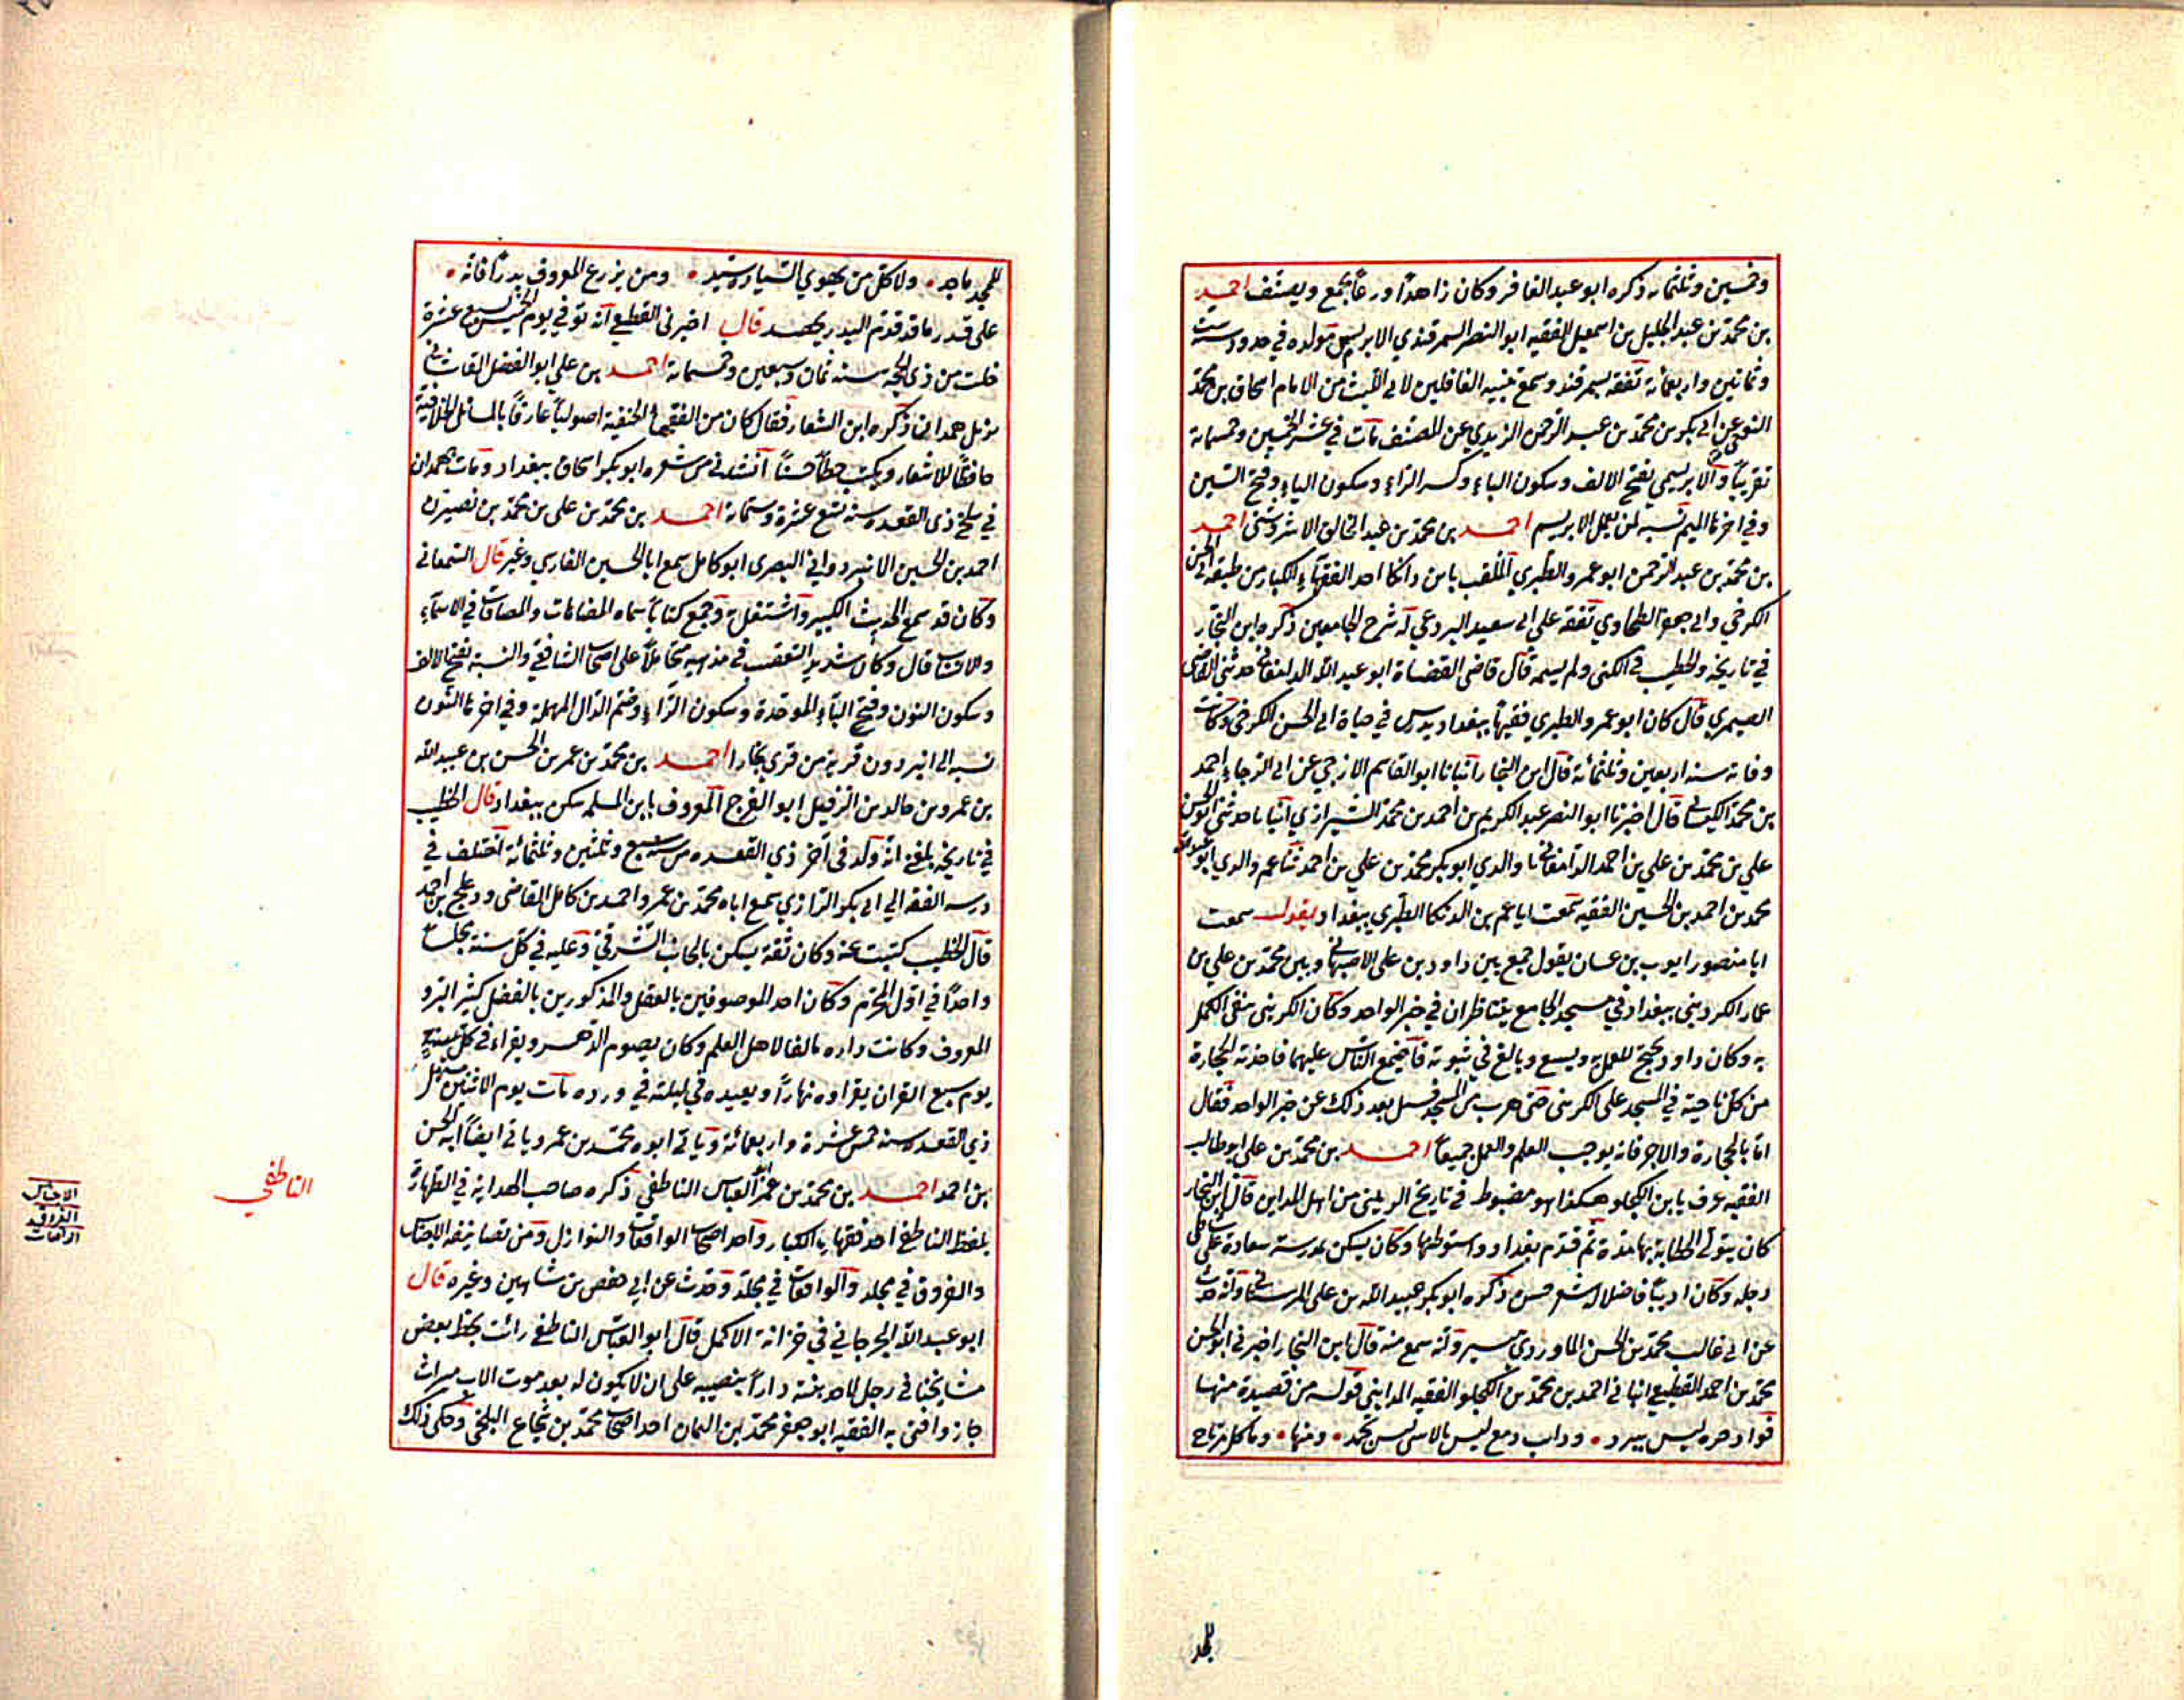 وخمسين وثلثمائة ذكره ابو عبد الغافر وكان زاهداً ورعاً يجمع ويصنف احمد
بن محمد بن عبد الجليل بن اسمعيل الفقيه ابو النصر السمرقندي الابريسمي مولده في حدود ست
وثمانين واربعمائة تفقه بسمرقند وسمع تنبيه الغافلين لابي الليث من الامام اسحاق بن محمد
النوحي عن ابي بكر بن محمد بن عبد الرحمن الزيدي عن المصنف مات في عشر الخمسين وخمسمائة
تقريباً والابريسمي بفتح الالف وسكون الباء وكسر الراء وسكون الياء وفتح السين
وفي اخرها الميم نسبة لمن يعمل الابريسم احمد بن محمد بن عبد الخالق الاشروسني احمد
بن محمد بن عبد الرحمن ابو عمرو الطبري الملقب بابن دانكا احد الفقهاء الكبار من طبقة ابي الحسن
الكرخي وابي جعفر الطحاوي تفقه على ابي سعيد البردعي له شرح الجامعين ذكره ابن النجار
في تاريخه والخطيب في الكنى ولم يسمه قال قاضي القضاة ابو عبد الله الدامغاني حدثني القاضي
الصيمري قال كان ابو عمرو الطبري فقيهاً ببغداد يدرس في حياة ابي الحسن الكرخي وكانت
وفاته سنة اربعين وثلثمائة قال ابن النجار انبانا ابو القاسم الازجي عن ابي الرجاء احمد
بن محمد الكيساني قال اخبرنا ابو النصر عبد الكريم بن احمد بن محمد الشيرازي انبانا حدثني ابو الحسن
علي بن محمد بن علي بن احمد الدامغاني نا والدي ابو بكر محمد بن علي بن احمد نا عم والدي ابو عبد الله
محمد بن احمد بن الحسين الفقيه سمعت ابا عمر بن الدنكا الطبري ببغداد يقول سمعت
ابا منصور ايوب بن غسان يقول جمع بين داود بن علي الاصبهاني وبين محمد بن علي بن
عمار الكرديني ببغداد في مسجد الجامع يتناظران في خبر الواحد وكان الكريني ينفي العمل
به وكان داود يحتج للعمل به ويسمع ويبالغ في ثبوته فاجتمع الناس عليهما فاخذته الحجارة
من كل ناحية في المسجد على الكريني حتى هرب من المسجد فسئل بعد ذلك عن خبر الواحد فقال
اما بالحجارة والاجر فانه يوجب العلم والعمل جميعاً احمد بن محمد بن علي ابو طالب
الفقيه عرف بابن الكجلو هكذا هو مضبوط في تاريخ الدبيثي من اهل المداين قال ابن النجار
كان يتولى الخطابة بها مدة ثم قدم بغداد واستوطنها وكان يسكن بمدرسة سعادة على
دجله وكان اديباً فاضلا له شعر حسن ذكره ابو بكر عبيد الله بن علي المارستاني وانه حدث
عن ابي غالب محمد بن الحسن الماوردي وانه سمع منه قال ابن النجار اخبرني ابو الحسن
محمد بن احمد القطيعي انبا في احمد بن محمد بن الكجلو الفقيه المدايني قوله من قصيدة منها
فؤاد حره ليس يبرد • وداب دمع ليس بالاسى يجمد • ومنها • وما كل مرتاح
للمجد
للمجد ماجد • ولا كل من يهوي السيادة سيد • ومن يزرع المعروف بدراً فانه •
على قدر ما قد قدم البدر يحصد قال اخبرني القطيعي انه توفي يوم الخميس سبع عشرة
خلت من ذي الحجة سنة ثمان وسبعين وخمسمائة احمد بن علي ابو الفضل القاشاني
نزيل همدان ذكره ابن الشعار فقال كان من الفقهاء الحنفية اصولياً عارفاً بالمسائل الخلافية
حافظاً للاشعار ويكتب خطاً حسناً انشدني من شعره ابو بكر اسحاق ببغداد ومات بهمدان
في سلخ ذي القعدة سنة تسع عشرة وستمائة احمد بن محمد بن علي بن محمد بن نصير بن
احمد بن الحسين الانبردواني البصري ابو كامل سمع ابا الحسين الفارسي وغير قال السمعاني
وكان قد سمع الحديث الكبير واشتغل به وجمع كتاباً سماه المضاهات والمضافات في الاسماء
والانساب قال وكان شديد التعصب في مذهبه متحاملاً على اصحاب الشافعي والنسبة بفتح الالف
وسكون النون وفتح الباء الموحدة وسكون الراء وضم الدال المهملة وفي اخرها النون
نسبة الى انبردون قرية من قرى بخارا احمد بن محمد بن عمر بن الحسن بن عبيد الله
بن عمرو بن خالد بن الرفيل ابو الفرج المعروف بابن المسلمه سكن ببغداد قال الخطيب
في تاريخه بلغني انه ولد في آخر ذي القعدة من سنة سبع وثلثين وثلثمائة اختلف في
درسه الفقه الى ابي بكر الرازي سمع اباه محمد بن عمرو احمد بن كامل القاضي ودعلج بن احمد
قال الخطيب كتبت عنه وكان ثقة يسكن بالجانب الشرقي وعليه في كل سنة مجلساً
واحداً في اول المحرم وكان احد الموصوفين بالعقل والمذكورين بالفضل كثير البر و
المعروف وكانت داره مالفا لاهل العلم وكان يصوم الدهر ويقراء في كل
يوم سبع القران يقراوه نهاراً ويعيده في ليلته في ورده مات يوم الاثنين مستهل
ذي القعدة سنة خمس عشرة واربعمائة وياتي ابوه محمد بن عمر وياتي ايضاً ابنه الحسن
بن احمد احمد بن محمد بن عمر ابو العباس الناطفي ذكره صاحب الهداية في الطهارة
بلفظ الناطفي احد فقهاينا الكبار واحد اصحاب الواقعات والنوازل ومن تصانيفه الاجناس
والفروق في مجلد والواقعات في مجلد وحدث عن ابي حفص بن شاهين وغيره قال
ابو عبد الله الجرجاني في خزانة الاكمل قال ابو العباس الناطفي رائت بخط بعض
مشايخنا في رجل لاحد بنيه داراً بنصيبه على ان لا يكون له بعد موت الاب ميراث
جاز وافتى به الفقيه ابو جعفر محمد بن اليمان احد اصحاب محمد بن شجاع البلخي وحكى ذلك
الناطفي
الاجناس
الفروق
الواقعات